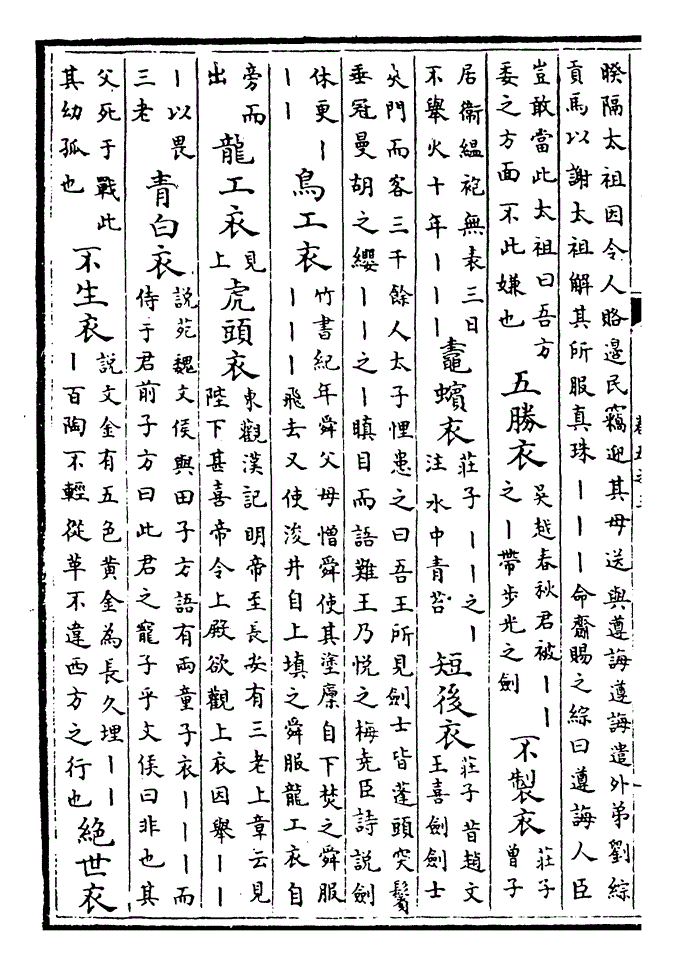 暌隔太祖因令人賂邊民竊迎其母送與遵誨遵誨遣外弟劉綜
貢馬以謝太祖解其所服真珠丨丨丨命齋賜之綜曰遵誨人臣
豈敢當此太祖曰吾方
委之方面不此嫌也
五勝衣
吳越春秋君被丨丨
之丨帶步光之劍
不製衣
莊子
曾子
居衛縕袍無表三日
不舉火十年丨丨丨
鼃蠙衣
莊子丨丨之丨
注水中青苔
短後衣
莊子昔趙文
王喜劍劍士
夾門而客三千餘人太子悝患之曰吾王所見劍士皆蓬頭突鬢
垂冠曼胡之纓丨丨之丨瞋目而語難王乃悦之梅堯臣詩說劍
休更丨
丨丨
鳥工衣
竹書紀年舜父母憎舜使其塗廩自下焚之舜服
丨丨丨飛去又使浚井自上填之舜服龍工衣自
旁而
出
龍工衣
見
上
虎頭衣
東觀漢記明帝至長安有三老上章云見
陛下甚喜帝令上殿欲觀上衣因舉丨丨
丨以畏
三老
青白衣
說苑魏文侯與田子方語有兩童子衣丨丨丨而
侍于君前子方曰此君之寵子乎文侯曰非也其
父死于戰此
其幼孤也
不生衣
說文金有五色黄金為長久埋丨丨
丨百陶不輕從革不違西方之行也
絕世衣